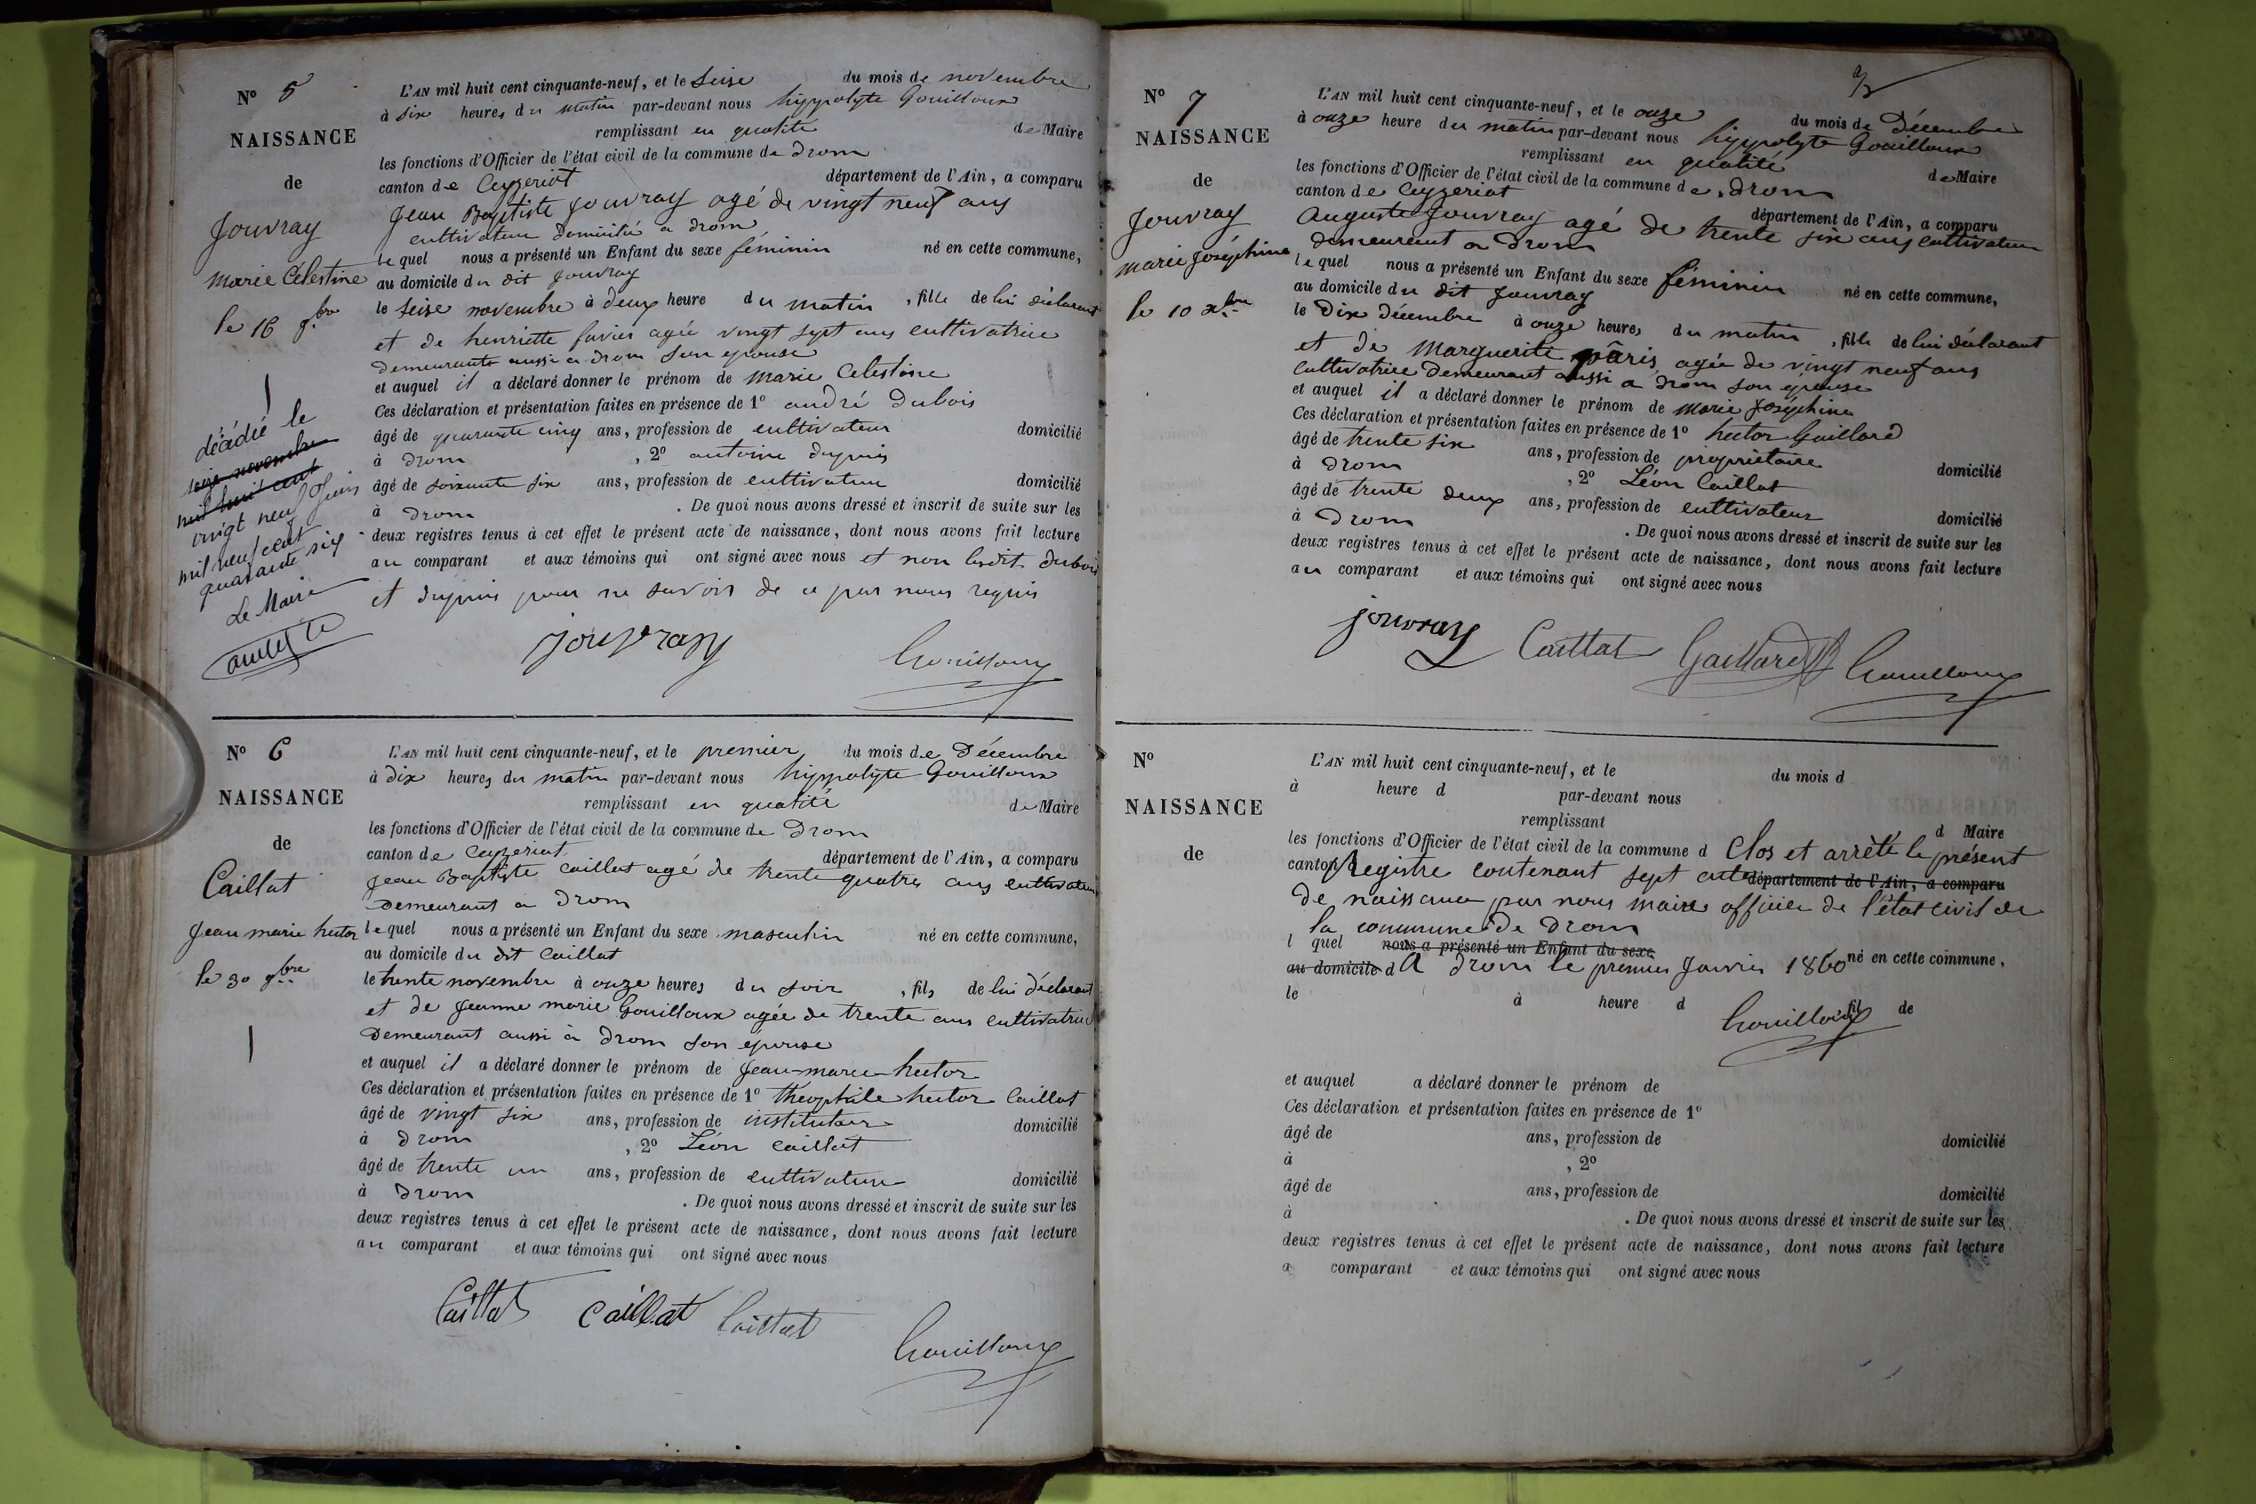 N° 5
NAISSANCE
de
Jouvray
marie Célestine
le 16 9.bre
décédié le
seize novembre
mil huit cent
vingt neuf Juin
mil neuf cent
quarante six
Le Maire
L'AN mil huit cent cinquante-neuf, et le seise du mois de novembre
à six heures du matin par-devant nous hyppolyte Gouilloux
remplissant en qualité de Maire
les fonctions d'Officier de l'état civil de la commune de drom
canton de Ceyzeriat département de l'Ain, a comparu
Jean Baptiste Jouvray agé de vingt neuf ans
cultivateur domicilié a drom
lequel nous a présenté un Enfant du sexe féminin né en cette commune,
au domicile du dit Jouvray
le seise novembre à deux heure du matin, fille de lui déclarant
et de henriette favier agée vingt sept ans cultivatrice
demeurante aussi a drom son epouse
et auquel il a déclaré donner le prénom de marie Celestine
Ces déclaration et présentation faites en présence de 1° andré Dubois
âgé de quarante cinq ans, profession de cultivateur domicilié
à drom, 2° antoine dupuis
âgé de soixante six ans, profession de cultivateur domicilié
à drom . De quoi nous avons dressé et inscrit de suite sur les
deux registres tenus à cet effet le présent acte de naissance, dont nous avons fait lecture
au comparant et aux témoins qui ont signé avec nous et non lesdit dubois
et dupuis pour ne savoir de ce par nous requis
jouvray Gouilloux
N° 6
NAISSANCE
de
Caillat
Jean marie hector
le 30 9.bre
L'AN mil huit cent cinquante-neuf, et le premier du mois de Décembre
à dix heures du matin par-devant nous hyppolyte Gouilloux
remplissant en qualité de Maire
les fonctions d'Officier de l'état civil de la commune de Drom
canton de Ceyzeriat département de l'Ain, a comparu
Jean Baptiste Caillat agé de trente quatre ans cultivateur
Demeurant a Drom
lequel nous a présenté un Enfant du sexe masculin né en cette commune,
au domicile du dit Caillat
le trente novembre à onze heures du soir, fils de lui déclarant
et de Jeanne marie Gouilloux agée de trente ans cultivatrice
Demeurant aussi à Drom son épouse
et auquel il a déclaré donner le prénom de Jean-marie-hector
Ces déclaration et présentation faites en présence de 1° théophile hector Caillat
âgé de vingt six ans, profession de instituteur domicilié
à drom, 2° Léon Caillat
âgé de trente un ans, profession de cultivateur domicilié
à Drom . De quoi nous avons dressé et inscrit de suite sur les
deux registres tenus à cet effet le présent acte de naissance, dont nous avons fait lecture
au comparant et aux témoins qui ont signé avec nous
Caillat Caillat Caillat Gouilloux
N° 7
NAISSANCE
de
Jouvray
marie Joséphine
le 10 x.bre
L'AN mil huit cent cinquante-neuf, et le onze du mois de Décembre
à onze heure du matin par-devant nous hyppolyte Gouilloux
remplissant en qualité de Maire
les fonctions d'Officier de l'état civil de la commune de Drom
canton de Ceyzeriat département de l'Ain, a comparu
Auguste Jouvray agé de trente six ans cultivateur
demeurant a Drom
lequel nous a présenté un Enfant du sexe féminin né en cette commune,
au domicile du dit Jouvray
le Dix décembre à onze heures du matin, fille de lui déclarant
et de Marguerite pâris agée de vingt neuf ans
cultivatrice demeurant aussi a drom son epouse
et auquel il a déclaré donner le prénom de marie Joséphine
Ces déclaration et présentation faites en présence de 1° hector Gaillard
âgé de trente six ans, profession de propriétaire domicilié
à Drom, 2° Léon Caillat
âgé de trente deux ans, profession de cultivateur domicilié
à Drom . De quoi nous avons dressé et inscrit de suite sur les
deux registres tenus à cet effet le présent acte de naissance, dont nous avons fait lecture
au comparant et aux témoins qui ont signé avec nous
jouvray Caillat Gaillard Gouilloux
N°
NAISSANCE
de
L'AN mil huit cent cinquante-neuf, et le du mois d
à heure d par-devant nous
remplissant d Maire
les fonctions d'Officier de l'état civil de la commune d Clos et arrêté le présent
canton d Registre contenant sept actes département de l'Ain, a comparu
De naissance par nous maire officier de l'état civil de
la commune de Drom
l quel nous a présenté un Enfant du sexe
au domicile d A Drom le premier Janvier 1860 né en cette commune,
le à heure d fil de
Gouilloux
et auquel a déclaré donner le prénom de
Ces déclaration et présentation faites en présence de 1°
âgé de ans, profession de domicilié
à , 2°
âgé de ans, profession de domicilié
à . De quoi nous avons dressé et inscrit de suite sur les
deux registres tenus à cet effet le présent acte de naissance, dont nous avons fait lecture
a comparant et aux témoins qui ont signé avec nous